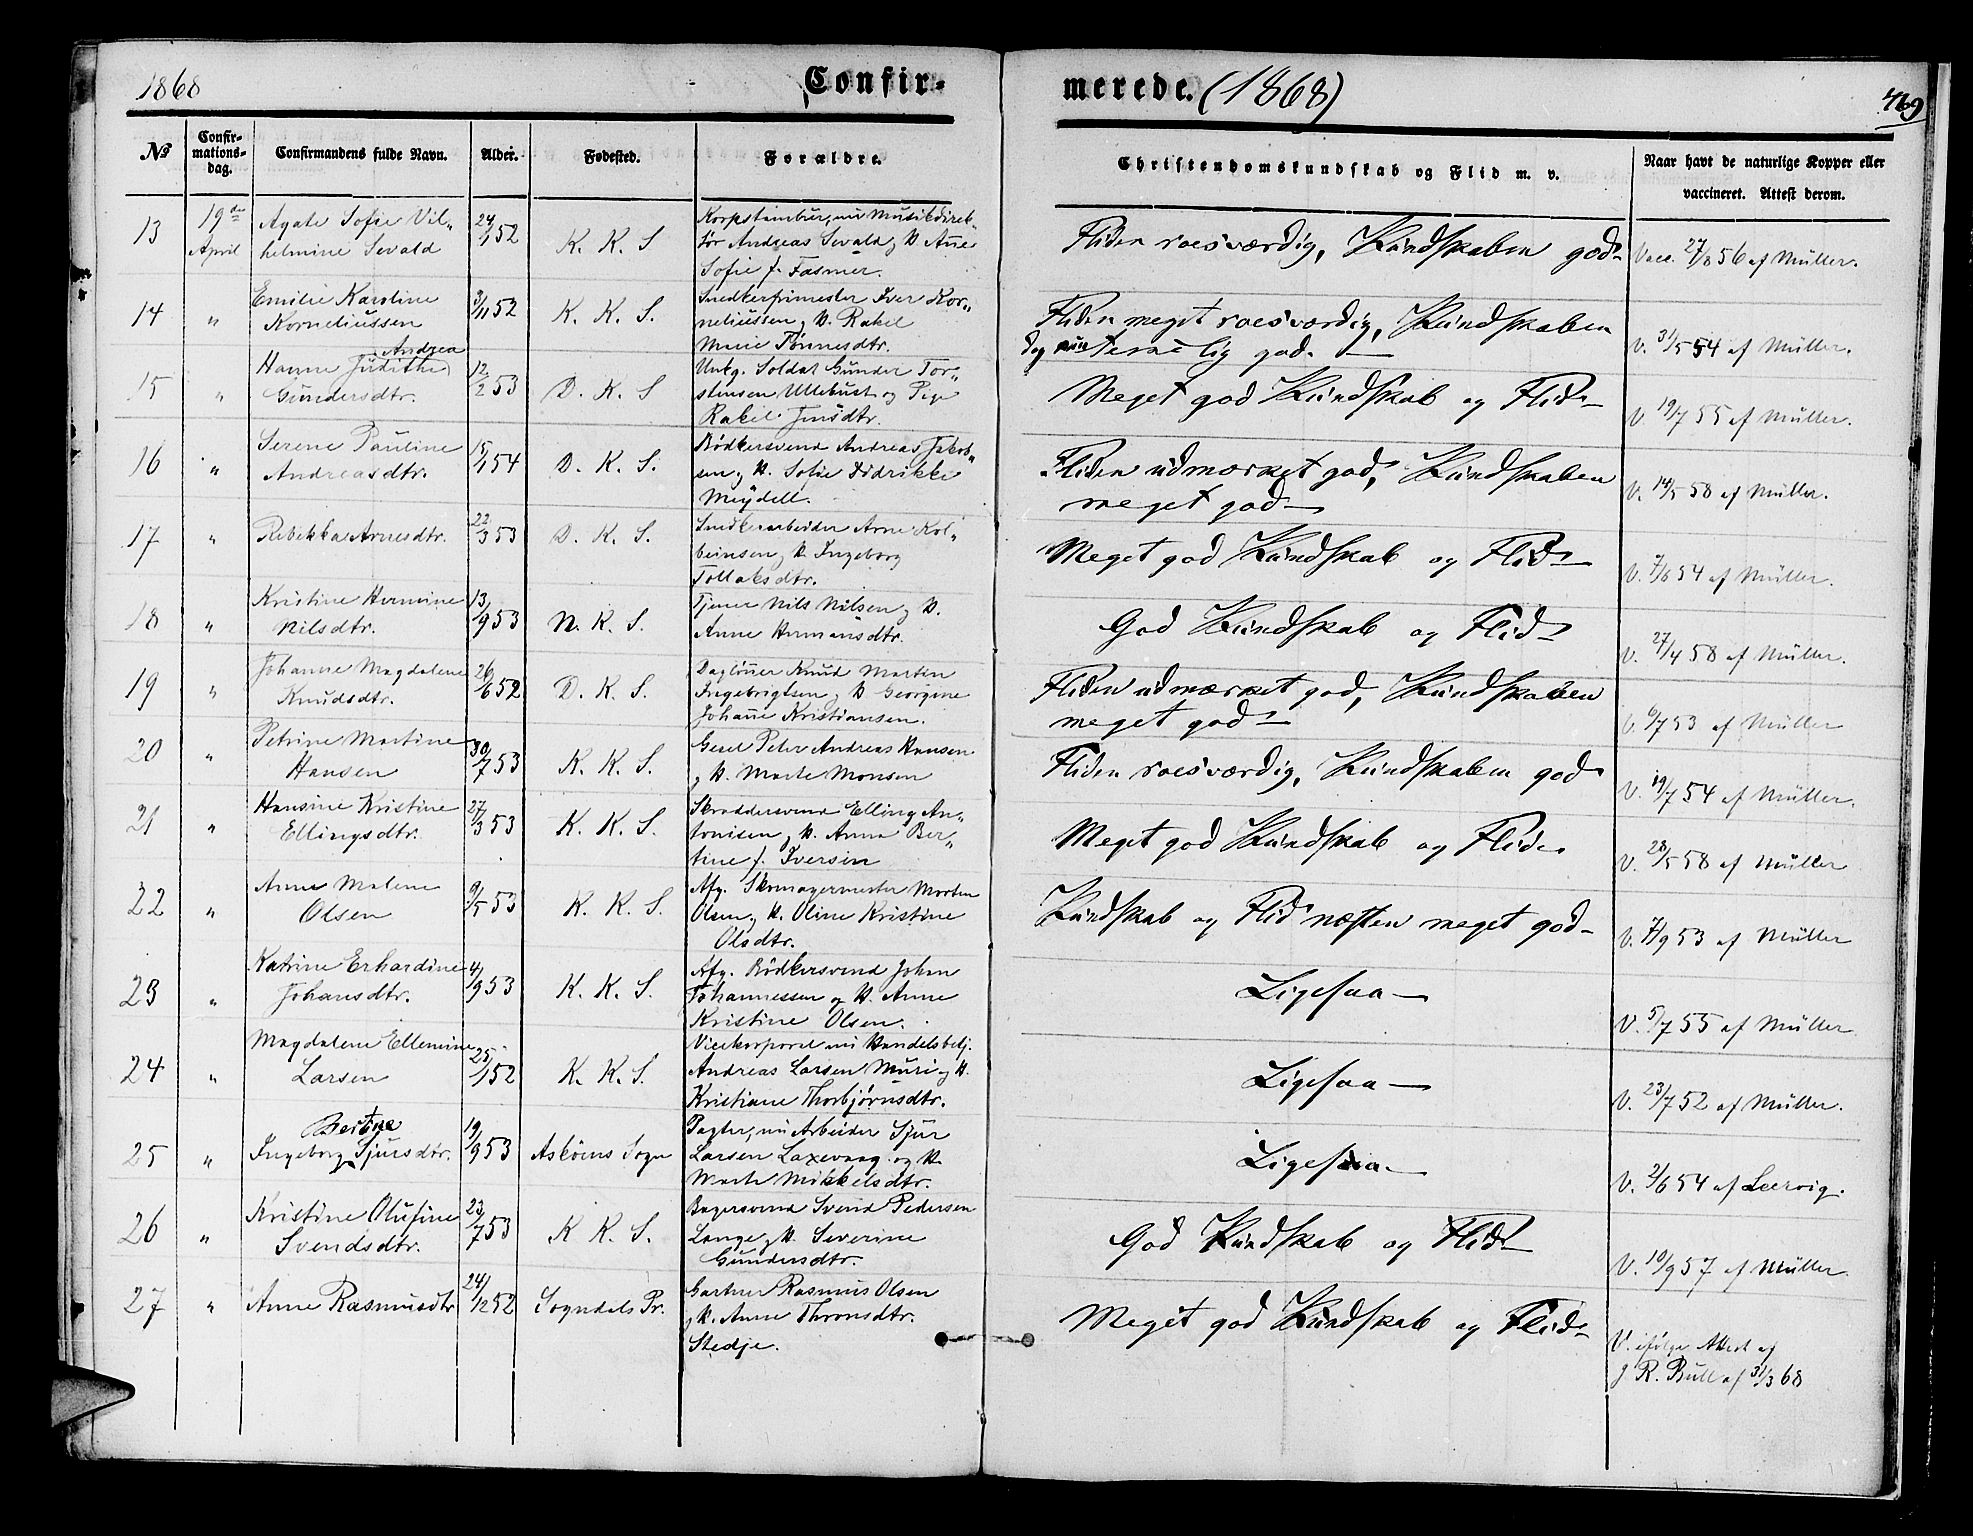 1868
Confir-
merede. (1868)
469
No
Confir-
mations-
dag.
Confirmandens fulde Navn.
Alder.
Fødested.
Forældre.
Christendomskundskab og Flid m. v.
Naar havt de naturlige Kopper eller
vaccineret. Attest derom.
13
19de
April
Agate Sofie Vil-
helmine Sevald
24/1 52
K. K. S
Korpstambur, nu Musikdirek-
tør Andreas Sevald og H. Ane
Sofie f. Fasmer.
Fliden roesværdig, Kundskaben god
Vacc. 27/8 56 af Müller.
14
"
Emilie Karoline
Korneliussen
3/11 52
K. K. S.
Snedkerfrimester Iver Kor-
neliussen og H. Rakel
Marie Tønnesdtr.
Fliden meget roesværdig, Kundskaben
dog kun temelig god.
V. 31/5 54 af Müller.
15
"
Andrea
Hanne Judithe
Gundersdtr.
12/2 53
D. K. S
Untg. Soldat Gunder Tor-
stensen Ullebust og Pige
Rakel Jensdtr.
Meget god Kundskab og Flid
V. 19/7 55 af Müller.
16
"
Serene Pauline
Andreasdtr.
15/1 54
D. K. S.
Bødkersvend Andreas Jakob-
sen og H. Sofie Didrikke
Meydell.
Fliden udmærket god, Kundskaben
meget god
V. 14/5 58 af Müller.
17
"
Rebekka Arnesdtr.
22/3 53
D. K. S.
Snedkerarbeider Arne Kol-
beinsen og H. Ingeborg
Tollaksdtr.
Meget god Kundskab og Flid
V. 7/6 54 af Müller.
18
"
Kristine Hermine
Nilsdtr.
13/9 53
N. K. S.
Tjener Nils Nilsen og H.
Anne Hermansdtr.
God Kundskab og Flid
V. 27/4 58 af Müller.
19
"
Johanne Magdalene
Knudsdtr.
26/6 52
D. K. S.
Dagløner Knud Martin
Ingebrigtsen og H Georgine
Johanne Kristiansen.
Fliden udmærket god, Kundskaben
meget god
V. 6/7 53 af Müller
20
"
Petrine Martine
Hansen
30/7 53
K. K. S.
Gesel Peter Andreas Hansen
og H. Marte Monsen
Fliden roesværdig, Kundskaben god
V. 19/7 54 af Müller.
21
"
Hansine Kristine
Ellingsdtr.
27/3 53
K. K. S.
Skræddersvend Elling An-
tonisen og H. Anna Ber-
tine f. Iversen
Meget god Kundskab og Flid
V. 28/5 58 af Müller
22
"
Anne Malene
Olsen
9/5 53
K. K. S.
Afg. Skomagermester Morten
Olsen og H. Oline Kristine
Olsdtr.
Kundskab og Flid næsten meget god
V. 7/9 53 af Müller
23
"
Katrine Erhardine
Johansdtr.
4/9 53
K. K. S.
Afg. Bødkersvend Johan
Johannessen og H. Anne
Kristine Olsen.
Ligesaa
V. 5/7 55 af Müller
24
"
Magdalene Ellemine
Larsen
25/1 52
K. K. S.
Vicekorporal nu Handelsbetj.
Andreas Larsen Muri og H.
Kristiane Thorbjørnsdtr.
Ligesaa
V. 23/7 52 af Müller.
25
"
Bertine
Ingeborg Sjursdtr.
19/9 53
Askøens Sogn
Pagter, nu Arbeider Sjur
Larsen Laxevaag og H.
Marte Mikkelsdtr.
Ligesaa
V. 2/6 54 af Leervig.
26
"
Kristine Olufine
Svendsdtr.
23/7 53
K K. S.
Bagersvend Svend Pedersen
Lange og H. Severine
Gundersdtr.
God Kundskab og Flid
V. 10/9 57 af Müller.
27
"
Anne Rasmusdtr
24/12 52
Sogndals Pr.
Gartner Rasmus Olsen
og H. Anne Thronsdtr.
Stedje.
Meget god Kundskab og Flid
V. ifølge Attest af
J R. Bull af 31/3 68